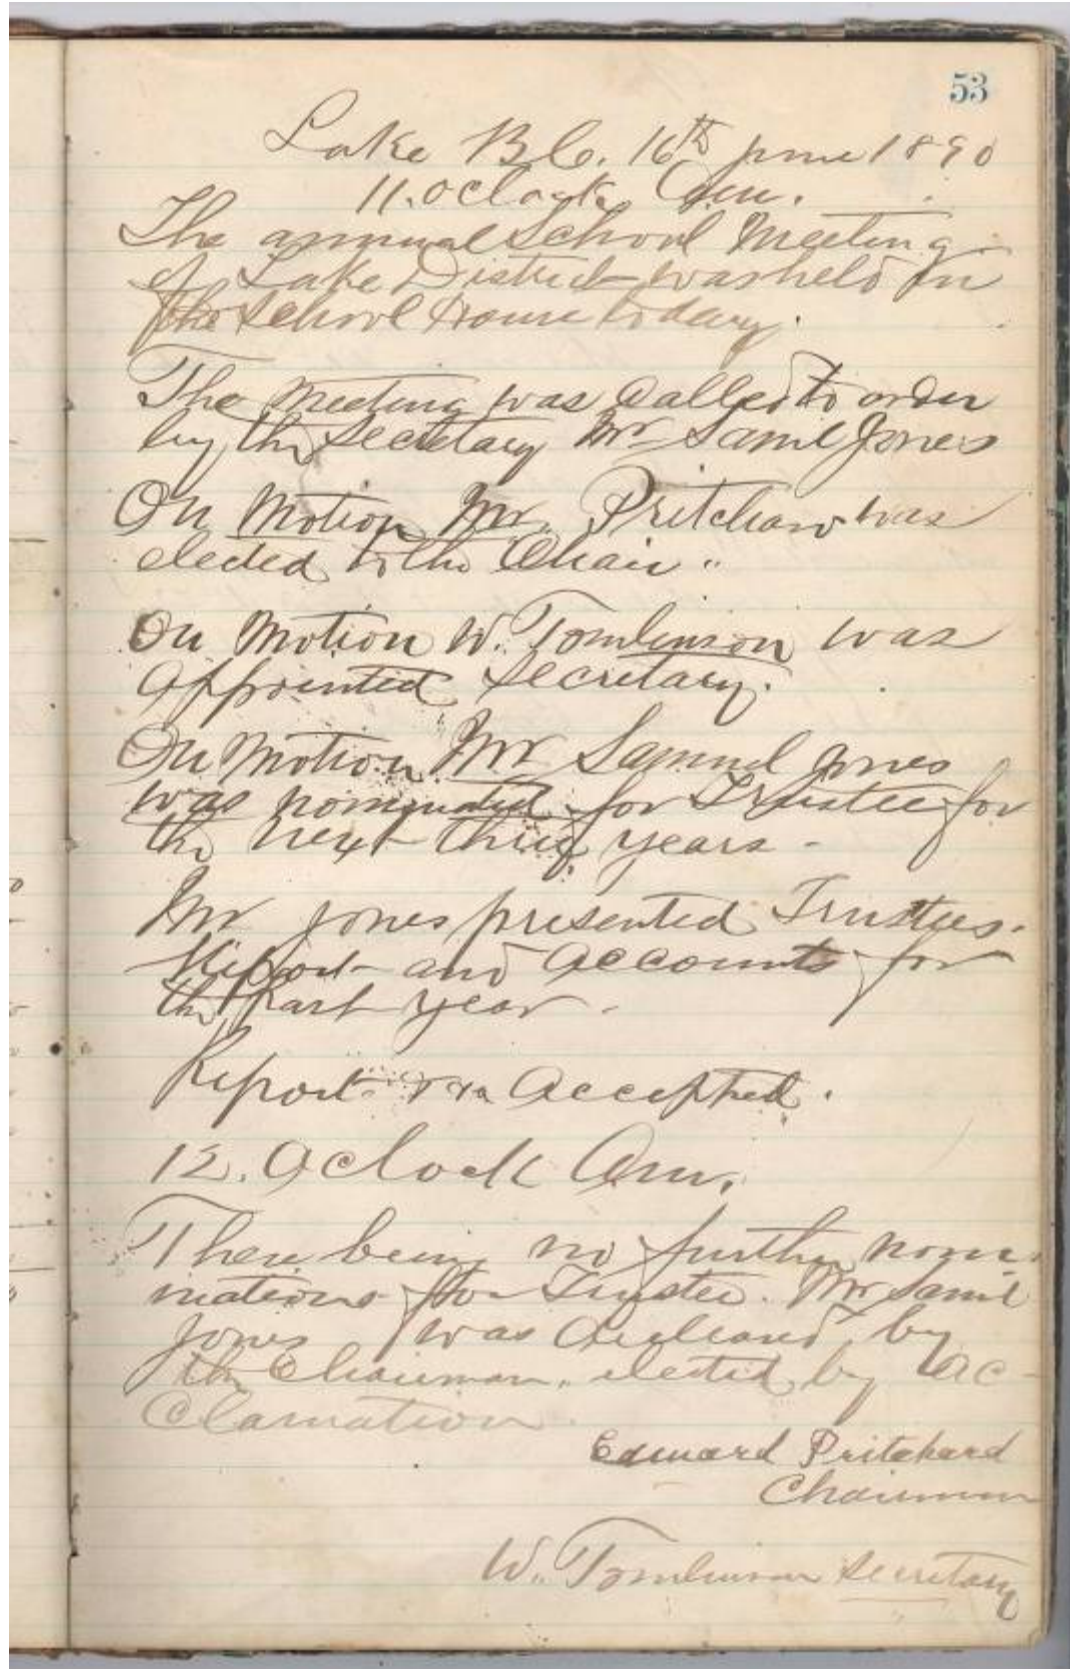 53
Lake B.C. 16th June 1890
11. oclock Am.
The annual School Meeting
of Lake District was held in
the School House to day.
The Meeting was Called to order
by the Secretary Mr Saml Jones
On Motion Mr. Pritchard was
elected to the Chair "
On Motion W. Tomlinson was
appointed Secretary.
On Motion Mr Samuel Jones
was nominated for Trustee for
the next three years -
Mr Jones presented Trustees.
Report and accounts for
the Past year.
Report Accepted.
12. Oclock Am.
There being no further nomi-
nations for Trustee. Mr Saml
Jones was declared by
the Chairman, elected by ac-
Clamation
Edward Pritchard
Chairman
W. Tomlinson Secretary